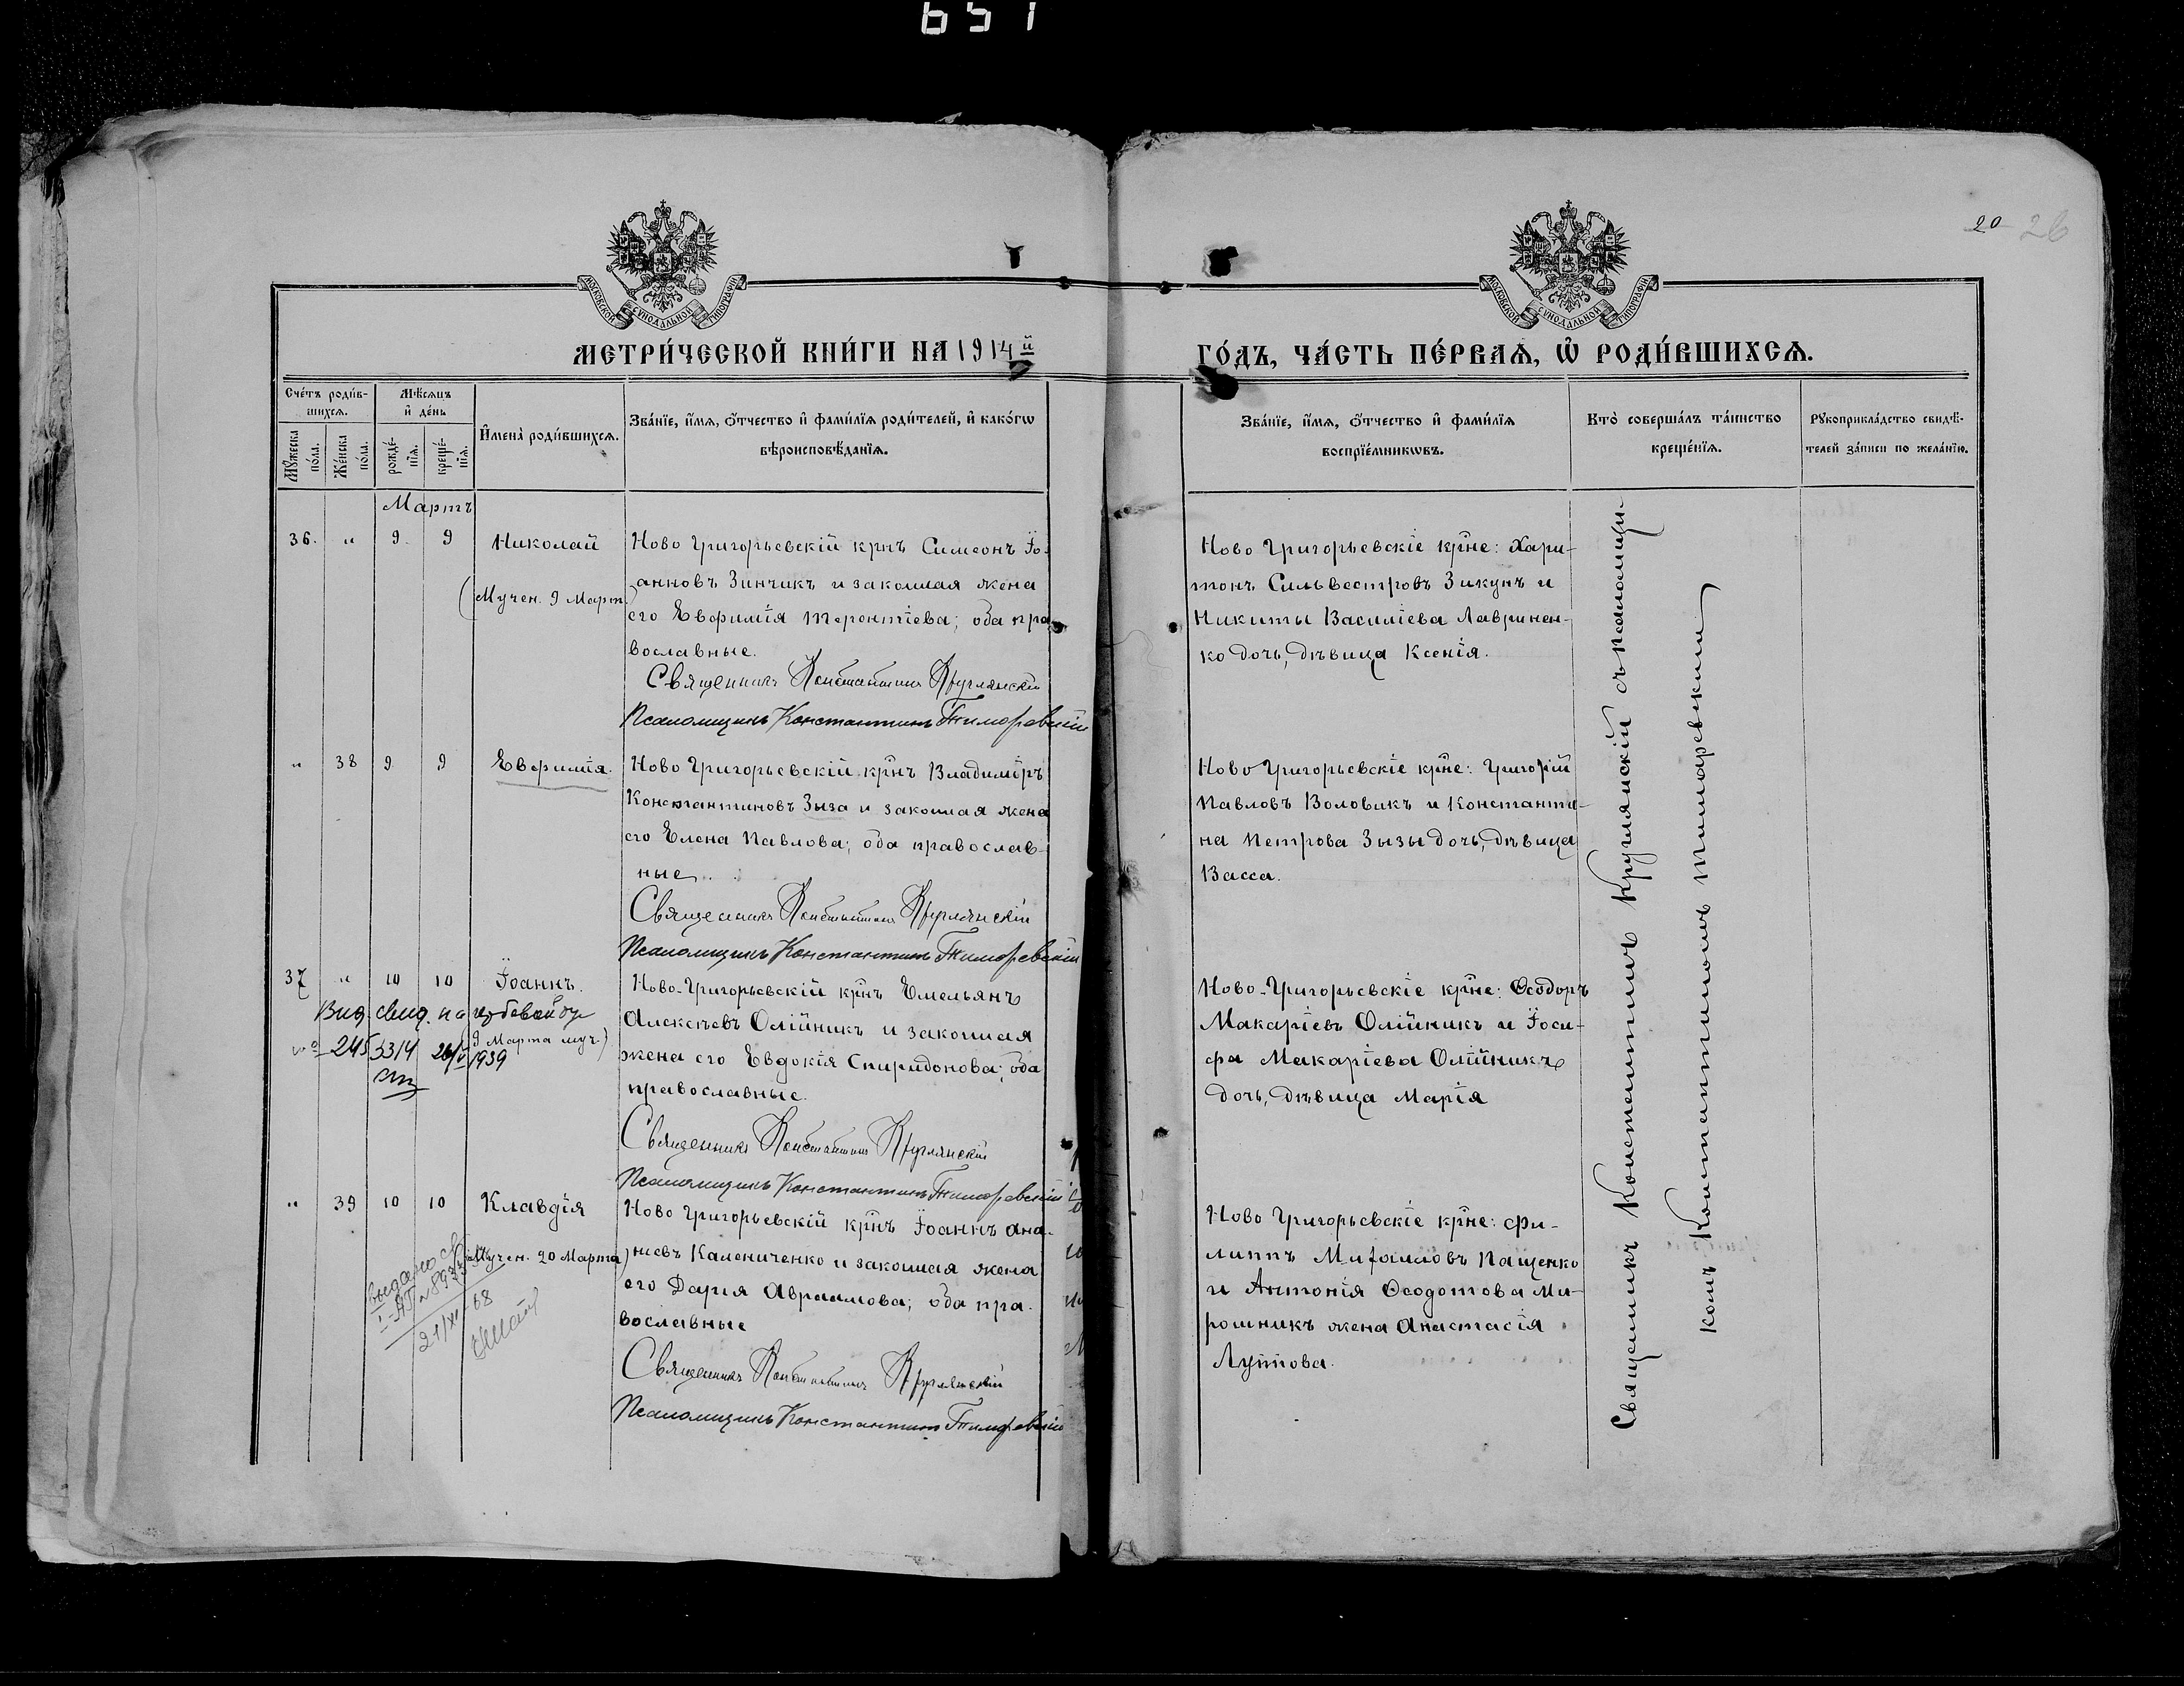 651
20 26
МОСКОВСКОЙ СУНОДАЛЬНОЙ ТИПОГРАФІИ
МОСКОВСКОЙ СУНОДАЛЬНОЙ ТИПОГРАФІИ
МЕТРИ́ЧЕСКОЙ КНИ́ГИ НА 1914й
ГО́ДЪ, ЧА́СТЬ ПЕ́РВАѦ, Ѡ҆ РОДИ́ВШИХСѦ.
Сче́тъ роди́в-
шихсѧ.
Мꙋ́жеска по́ла.
Же́нска по́ла.
Мѣ́сѧцъ
и҆ де́нь
рожде́-
нїѧ.
креще́-
нїѧ.
И҆мена̀ роди́вшихсѧ.
Зва́нїе, и҆́мѧ, ѻ҆́тчество и҆ фами́лїѧ роди́телей, и҆ како́гѡ
вѣроисповѣ́данїѧ.
Зва́нїе, и҆́мѧ, ѻ҆́тчество и҆ фами́лїѧ
воспрїе́мникѡвъ.
Кто̀ соверша́лъ та́инство
креще́нїѧ.
Рꙋкоприкла́дство свидѣ́-
телей за́писи по жела́нїю.
Мартъ
36. " 9 9 Николай
(Мучен. 9 Март.)
Ново Григорьевскій крнъ Симеонъ Іо-
анновъ Зинчикъ и законная жена
его Евфимія Терентіева; оба пра-
вославные.
Священникъ Константинъ Круглянскій
Псаломщикъ Константинъ Тиморевскій
Ново Григорьевскіе крне: Хари-
тонъ Сильвестровъ Зикунъ и
Никиты Василіева Лавринен-
ко дочь, дѣвица Ксенія.
" 38 9 9 Евфимія.
Ново Григорьевскій крнъ Владиміръ
Константиновъ Зыза и законная жена
его Елена Павлова; оба православ-
ные.
Священникъ Константинъ Круглянскій
Псаломщикъ Константинъ Тиморевскій
Ново Григорьевскіе крне: Григорій
Павловъ Воловикъ и Константи-
на Петрова Зызы дочь, дѣвица
Васса.
37 " 10 10 Іоаннъ.
9 Марта муч.)
Вид. свид. на гербовой бум
№ 245 3314 26/V 1939
Ново-Григорьевскій крнъ Емельянъ
Алексѣевъ Олійникъ и законная
жена его Евдокія Спиридонова; оба
православные.
Священникъ Константинъ Круглянскій
Псаломщикъ Константинъ Тиморевскій
Ново-Григорьевскіе крне: Ѳеодоръ
Макаріевъ Олійникъ и Іоси-
фа Макаріева Олійникъ
дочь, дѣвица Марія
" 39 10 10 Клавдія
Мучен. 20 Марта)
выдано св
21/XI-68
Ново Григорьевскій крнъ Іоаннъ Ана-
ніевъ Калениченко и законная жена
его Дарія Авраамова; оба пра-
вославные
Священникъ Константинъ Круглянскій
Псаломщикъ Константинъ Тиморевскій
Ново Григорьевскіе крне: Фи-
липпъ Михаиловъ Пащенко
и Антонія Ѳеодотова Ми-
рошникъ жена Анастасія
Священникъ Константинъ Круглянскій съ псаломщи-
комъ Константиномъ Тиморевскимъ